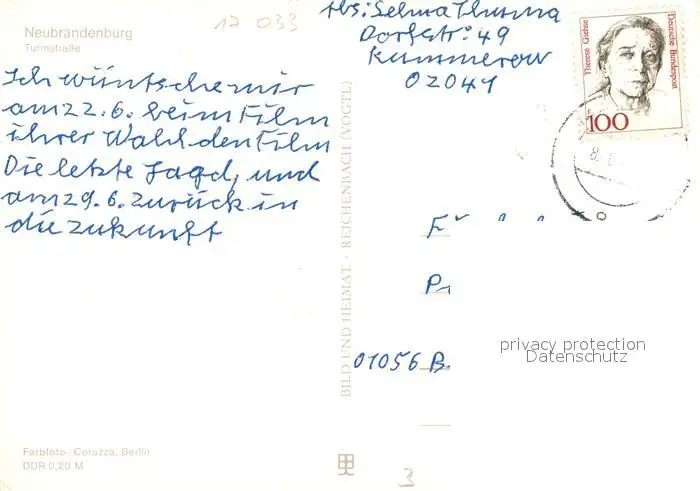 17 033
Neubrandenburg
Turmstraße
Abs: Selma Thurma
Dorfstr. 49
Kummerow
02041
Therese Giehse
Deutsche Bundespost
100
8.
Ich wüntsche mir
am 22.6. beim Film
ihrer Wahl den Film
Die letzte Jagd, und
am 29.6. Zurück in
die Zukunft
BILD UND HEIMAT · REICHENBACH (VOGTL)
01056 B
privacy protection
Datenschutz
Farbfoto: Corazza, Berlin
DDR 0,20 M
3